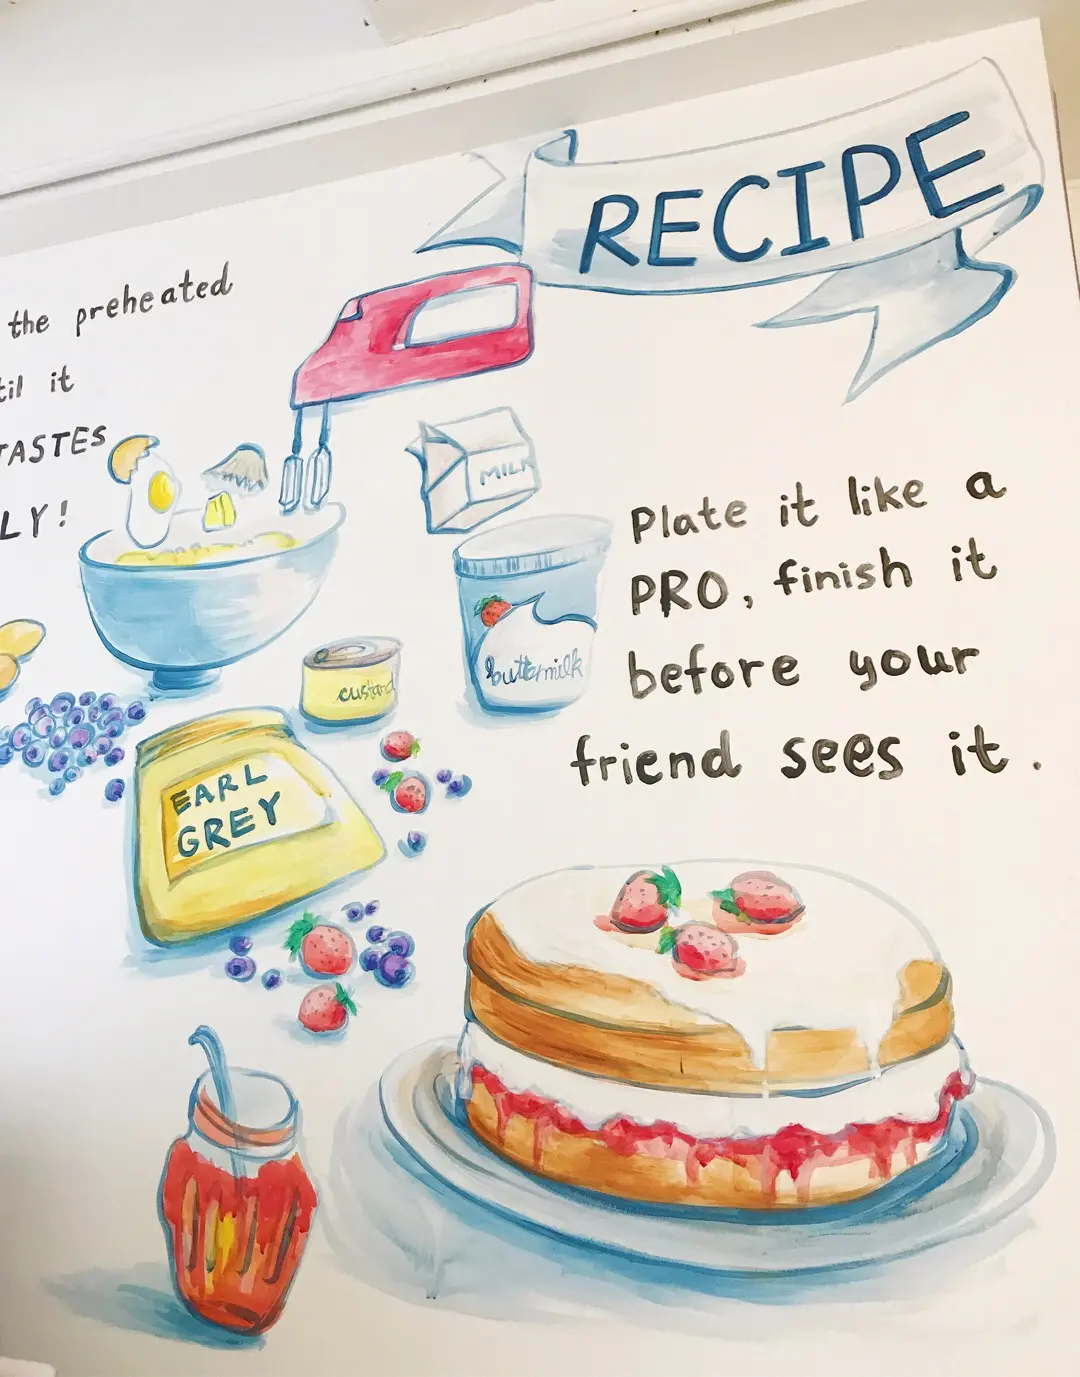 RECIPE
the preheated
til it
TASTES
LY!
MILK
buttermilk
custard
EARL
GREY
Plate it like a
PRO, finish it
before your
friend sees it.